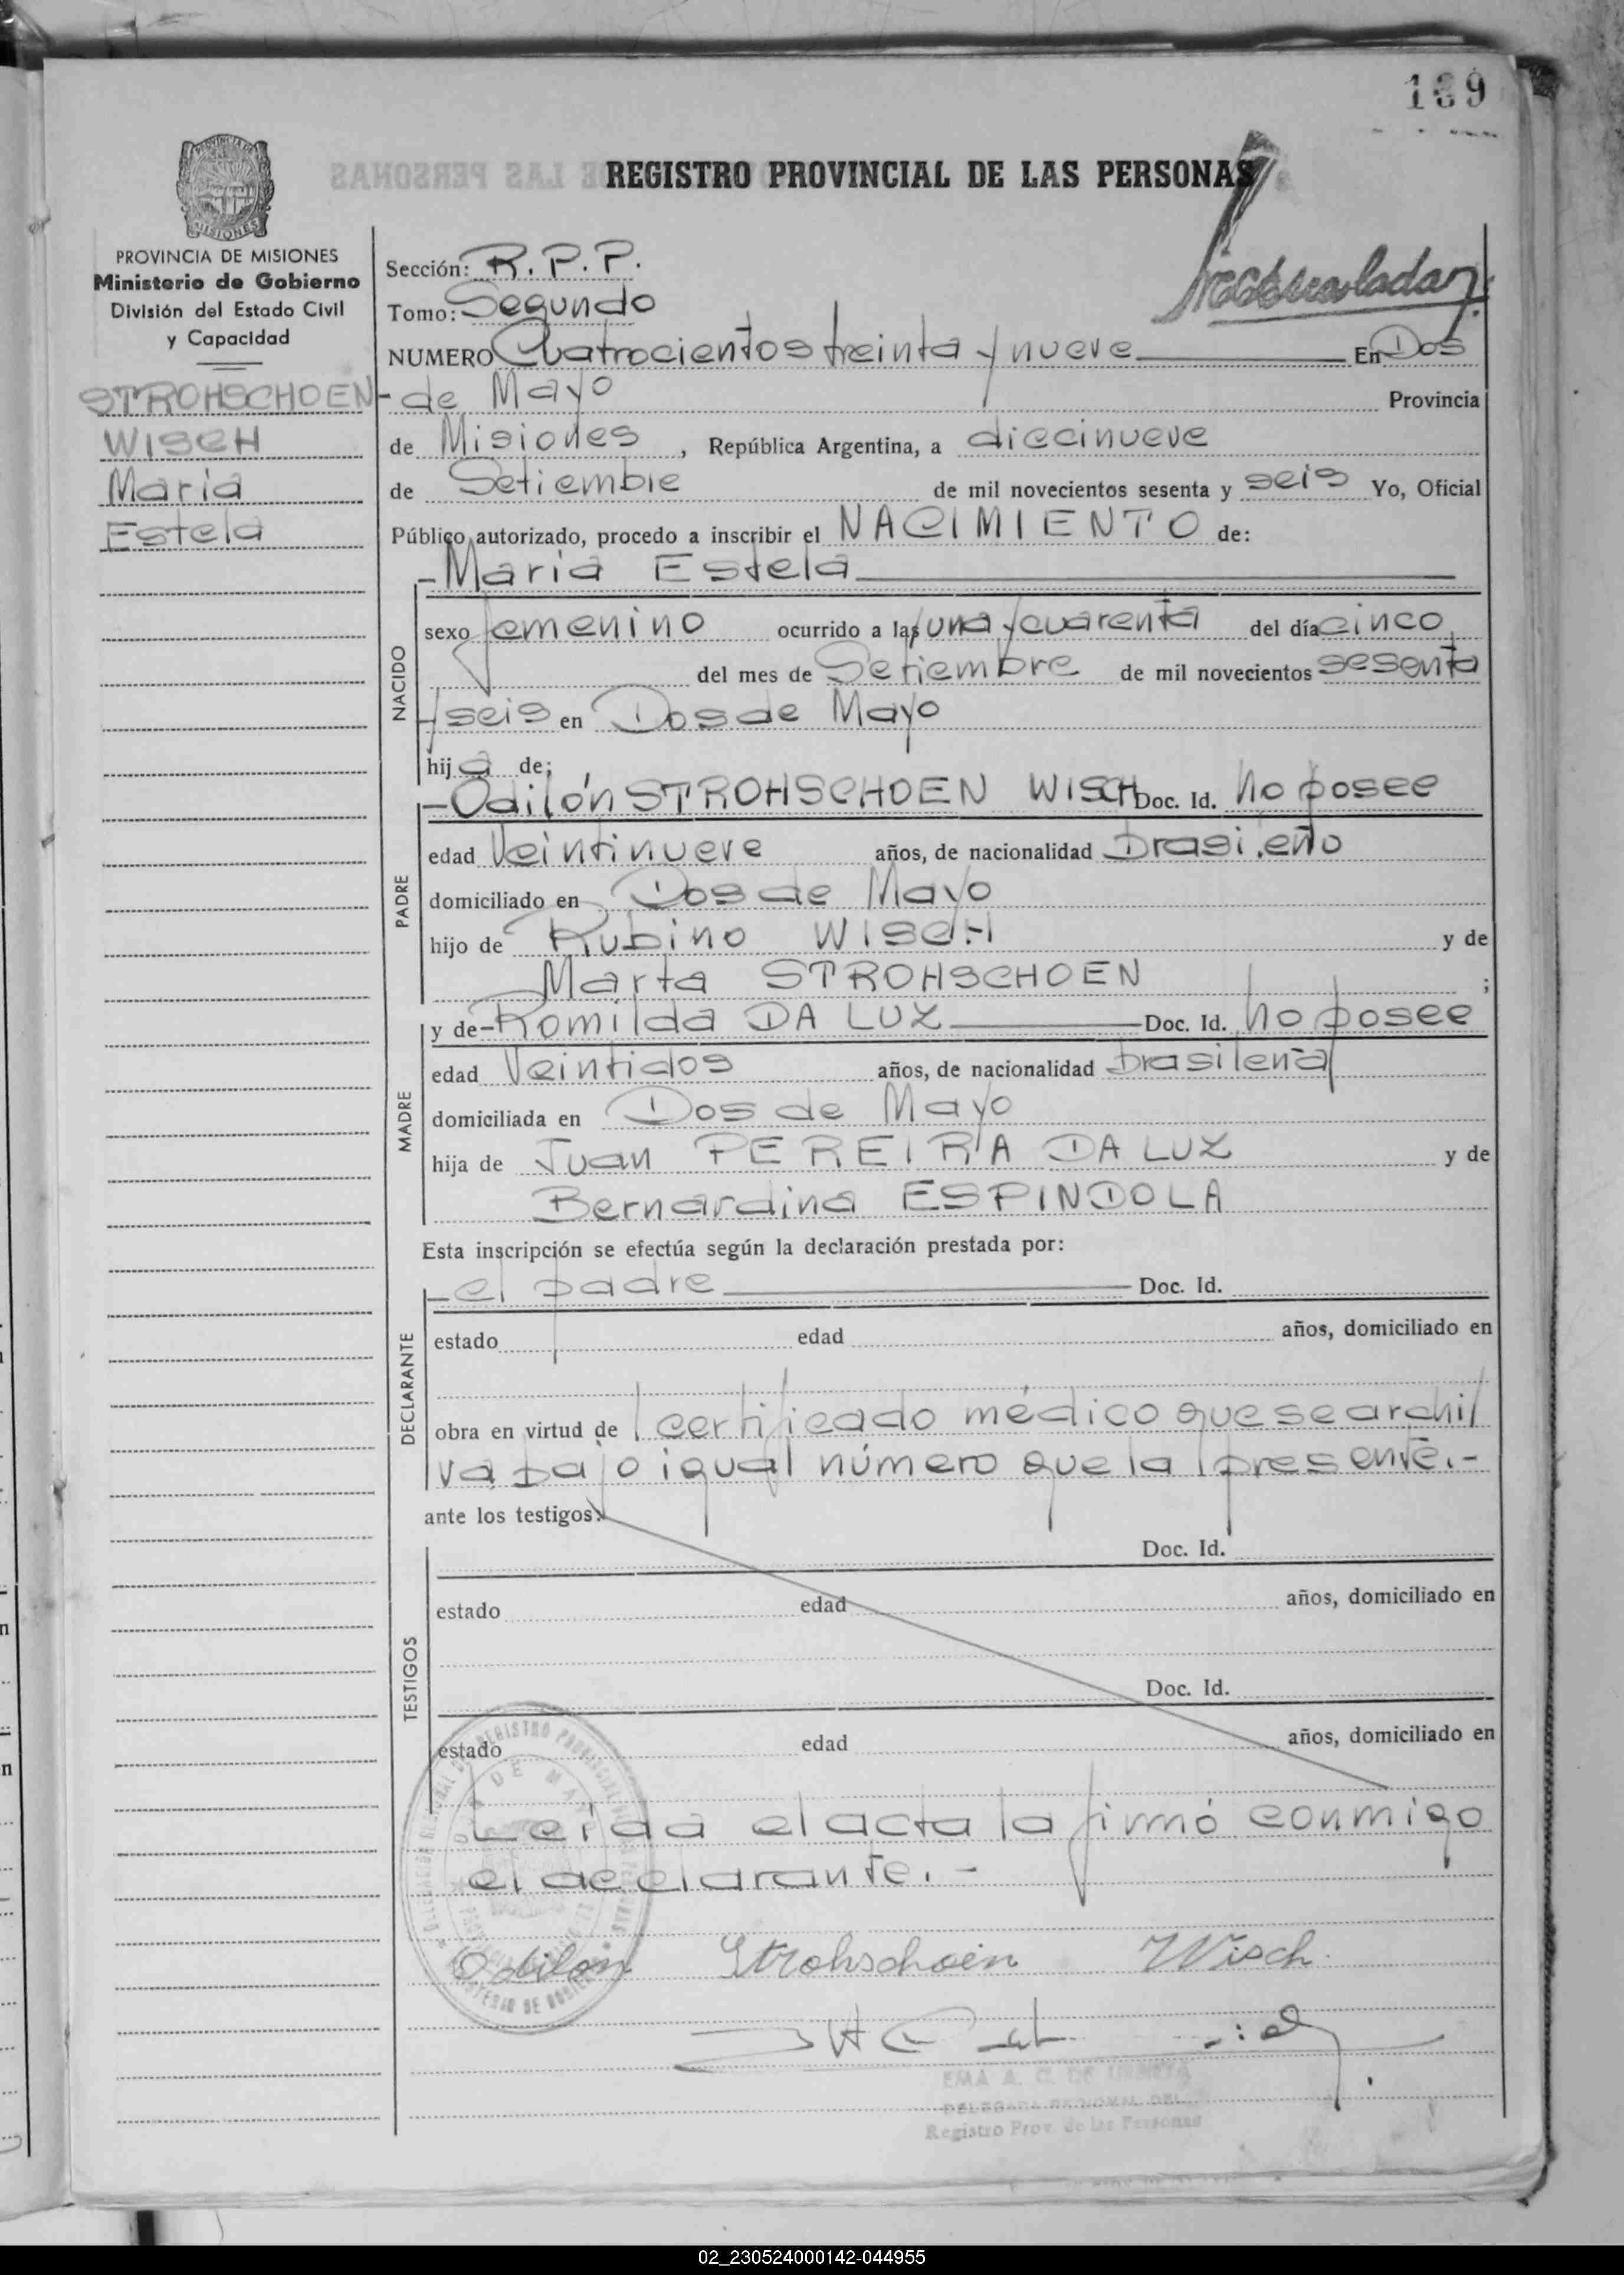 169
REGISTRO PROVINCIAL DE LAS PERSONAS
PROVINCIA DE MISIONES
Ministerio de Gobierno
División del Estado Civil
y Capacidad
STROHSCHOEN
WISCH
Maria
Estela
Sección: R.P.P.
Tomo: Segundo
NUMERO Cuatrocientos treinta y nueve En Dos
- de Mayo Provincia
de Misiones, República Argentina, a diecinueve
de Setiembre de mil novecientos sesenta y seis Yo, Oficial
Público autorizado, procedo a inscribir el NACIMIENTO de:
- Maria Estela
NACIDO
sexo femenino ocurrido a las una y cuarenta del día cinco
del mes de Setiembre de mil novecientos sesenta
y seis en Dos de Mayo
hija de;
PADRE
- Odilón STROHSCHOEN WISCH Doc. Id. no posee
edad Veintinueve años, de nacionalidad brasileño
domiciliado en Dos de Mayo
hijo de Rubino WISCH y de
Marta STROHSCHOEN ;
MADRE
y de - Romilda DA LUZ Doc. Id. no posee
edad Veintidos años, de nacionalidad brasileña
domiciliada en Dos de Mayo
hija de Juan PEREIRA DA LUZ y de
Bernardina ESPINDOLA
Esta inscripción se efectúa según la declaración prestada por:
DECLARANTE
- el padre Doc. Id.
estado edad años, domiciliado en
obra en virtud de certificado médico que se archi
va bajo igual número que la presente.-
ante los testigos:
TESTIGOS
Doc. Id.
estado edad años, domiciliado en
Doc. Id.
estado edad años, domiciliado en
Leída el acta la firmó conmigo
el declarante.-
Odilon Strohschoen Wisch
EMA A. C. DE
DELEGADA REGIONAL DEL
Registro Prov. de las Personas
02_230524000142-044955